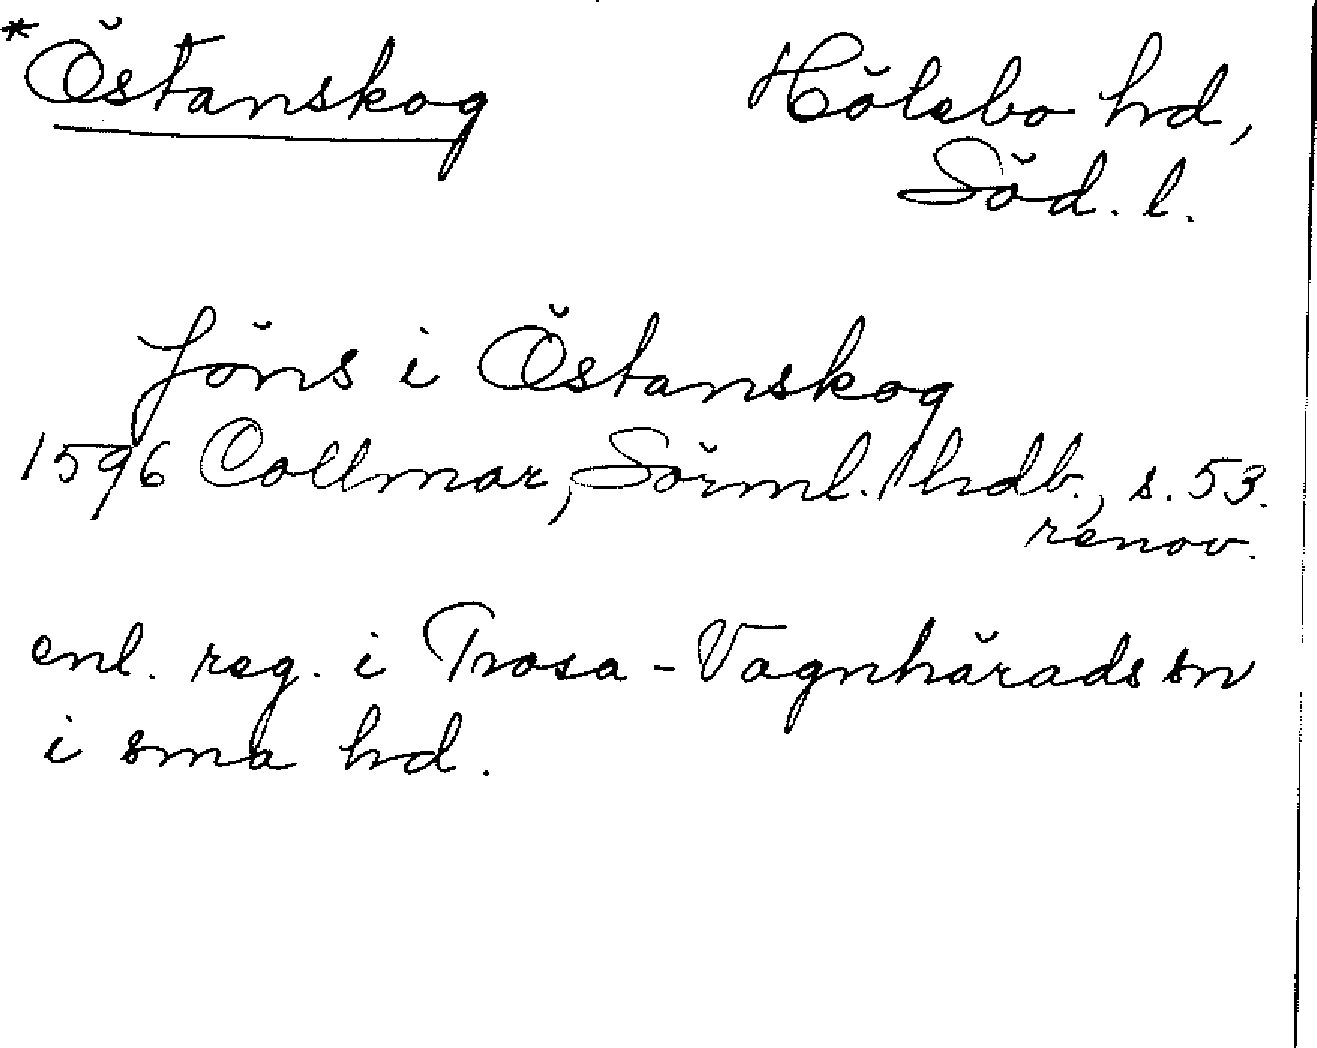 *Östanskog
Hölebo hd,
Söd. l.
Jöns i Östanskog
1596 Collmar, Sörml. hdb., s. 53.
renov.
enl. reg. i Trosa-Vagnhärads sn
i sma hd.